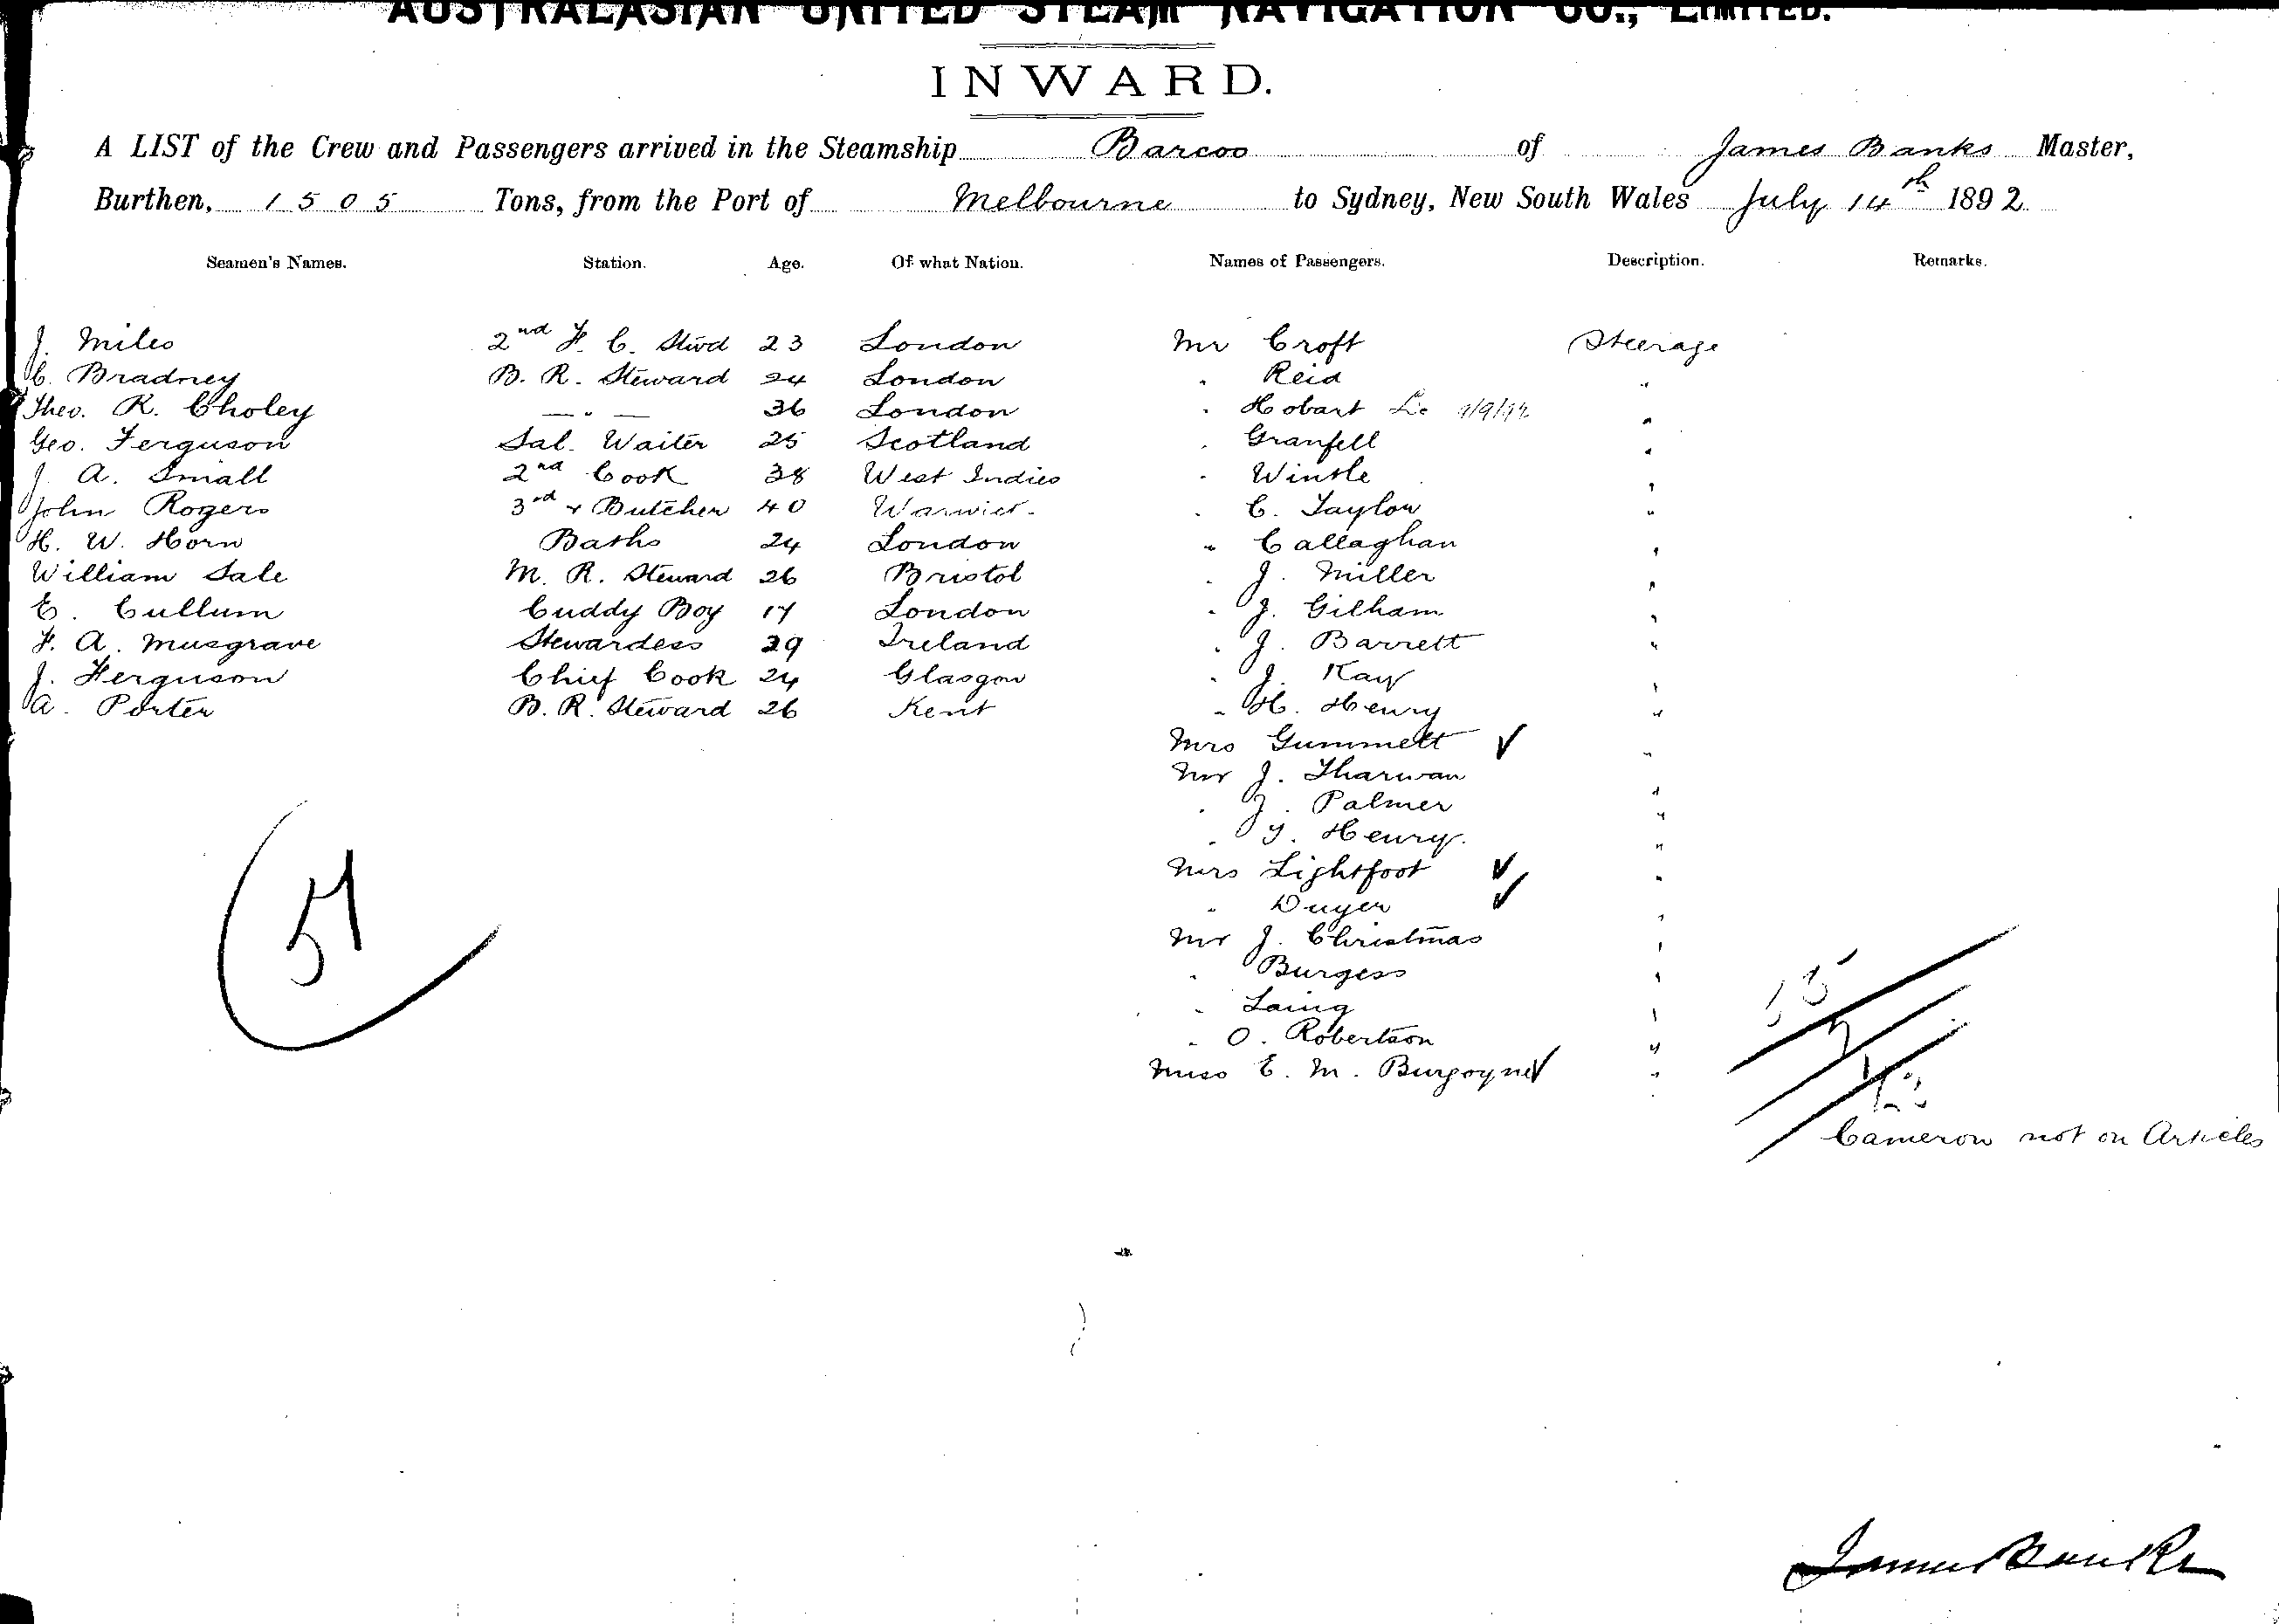 AUSTRALASIAN UNITED STEAM NAVIGATION CO., LIMITED.
INWARD.
A LIST of the Crew and Passengers arrived in the Steamship Barcoo of James Banks Master,
Burthen, 1505 Tons, from the Port of Melbourne to Sydney, New South Wales July 14th 1892
Seamen's Names. Station. Age. Of what Nation. Names of Passengers. Description. Remarks.
J. Miles 2nd F. C. Stwd 23 London Mr Croft Steerage
C. Bradney B. R. Steward 24 London " Reid "
Theo. R. Choley — " — 36 London " Hobart "
Geo. Ferguson Sal. Waiter 25 Scotland " Granfell "
J. A. Small 2nd Cook 38 West Indies " Wintle "
John Rogers 3rd & Butcher 40 Warwick " C. Taylor "
H. W. Horn Baths 24 London " Callaghan "
William Sale M. R. Steward 26 Bristol " J. Miller "
E. Cullum Cuddy Boy 17 London " J. Gilham "
F. A. Musgrave Stewardess 39 Ireland " J. Barrett "
J. Ferguson Chief Cook 24 Glasgow " J. Kay "
A. Porter B. R. Steward 26 Kent " H. Henry "
Mrs Gummett ✓ "
Mr J. Tharwan "
" J. Palmer "
" T. Henry. "
Mrs Lightfoot ✓ "
" Dwyer ✓ "
Mr J. Christmas "
" Burgess "
" Laing "
" O. Robertson "
Miss E. M. Burgoyne ✓ "
51
Cameron not on Articles
James Banks